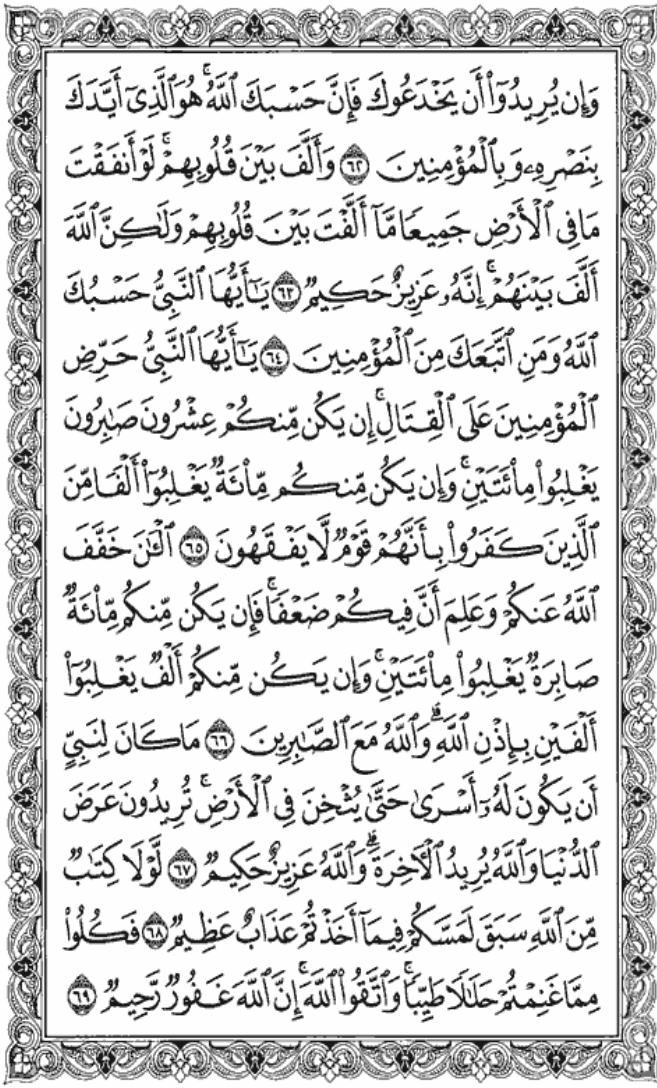 وَإِن يُرِيدُوٓا۟ أَن يَخْدَعُوكَ فَإِنَّ حَسْبَكَ ٱللَّهُ ۚ هُوَ ٱلَّذِىٓ أَيَّدَكَ
بِنَصْرِهِۦ وَبِٱلْمُؤْمِنِينَ ٦٢ وَأَلَّفَ بَيْنَ قُلُوبِهِمْ ۚ لَوْ أَنفَقْتَ
مَا فِى ٱلْأَرْضِ جَمِيعًا مَّآ أَلَّفْتَ بَيْنَ قُلُوبِهِمْ وَلَٰكِنَّ ٱللَّهَ
أَلَّفَ بَيْنَهُمْ ۚ إِنَّهُۥ عَزِيزٌ حَكِيمٌ ٦٣ يَٰٓأَيُّهَا ٱلنَّبِىُّ حَسْبُكَ
ٱللَّهُ وَمَنِ ٱتَّبَعَكَ مِنَ ٱلْمُؤْمِنِينَ ٦٤ يَٰٓأَيُّهَا ٱلنَّبِىُّ حَرِّضِ
ٱلْمُؤْمِنِينَ عَلَى ٱلْقِتَالِ ۚ إِن يَكُن مِّنكُمْ عِشْرُونَ صَٰبِرُونَ
يَغْلِبُوا۟ مِا۟ئَتَيْنِ ۚ وَإِن يَكُن مِّنكُم مِّا۟ئَةٌ يَغْلِبُوٓا۟ أَلْفًا مِّنَ
ٱلَّذِينَ كَفَرُوا۟ بِأَنَّهُمْ قَوْمٌ لَّا يَفْقَهُونَ ٦٥ ٱلْـَٰٔنَ خَفَّفَ
ٱللَّهُ عَنكُمْ وَعَلِمَ أَنَّ فِيكُمْ ضَعْفًا ۚ فَإِن يَكُن مِّنكُم مِّا۟ئَةٌ
صَابِرَةٌ يَغْلِبُوا۟ مِا۟ئَتَيْنِ ۚ وَإِن يَكُن مِّنكُمْ أَلْفٌ يَغْلِبُوٓا۟
أَلْفَيْنِ بِإِذْنِ ٱللَّهِ ۗ وَٱللَّهُ مَعَ ٱلصَّٰبِرِينَ ٦٦ مَا كَانَ لِنَبِىٍّ
أَن يَكُونَ لَهُۥٓ أَسْرَىٰ حَتَّىٰ يُثْخِنَ فِى ٱلْأَرْضِ ۚ تُرِيدُونَ عَرَضَ
ٱلدُّنْيَا وَٱللَّهُ يُرِيدُ ٱلْـَٔاخِرَةَ ۗ وَٱللَّهُ عَزِيزٌ حَكِيمٌ ٦٧ لَّوْلَا كِتَٰبٌ
مِّنَ ٱللَّهِ سَبَقَ لَمَسَّكُمْ فِيمَآ أَخَذْتُمْ عَذَابٌ عَظِيمٌ ٦٨ فَكُلُوا۟
مِمَّا غَنِمْتُمْ حَلَٰلًا طَيِّبًا ۚ وَٱتَّقُوا۟ ٱللَّهَ ۚ إِنَّ ٱللَّهَ غَفُورٌ رَّحِيمٌ ٦٩